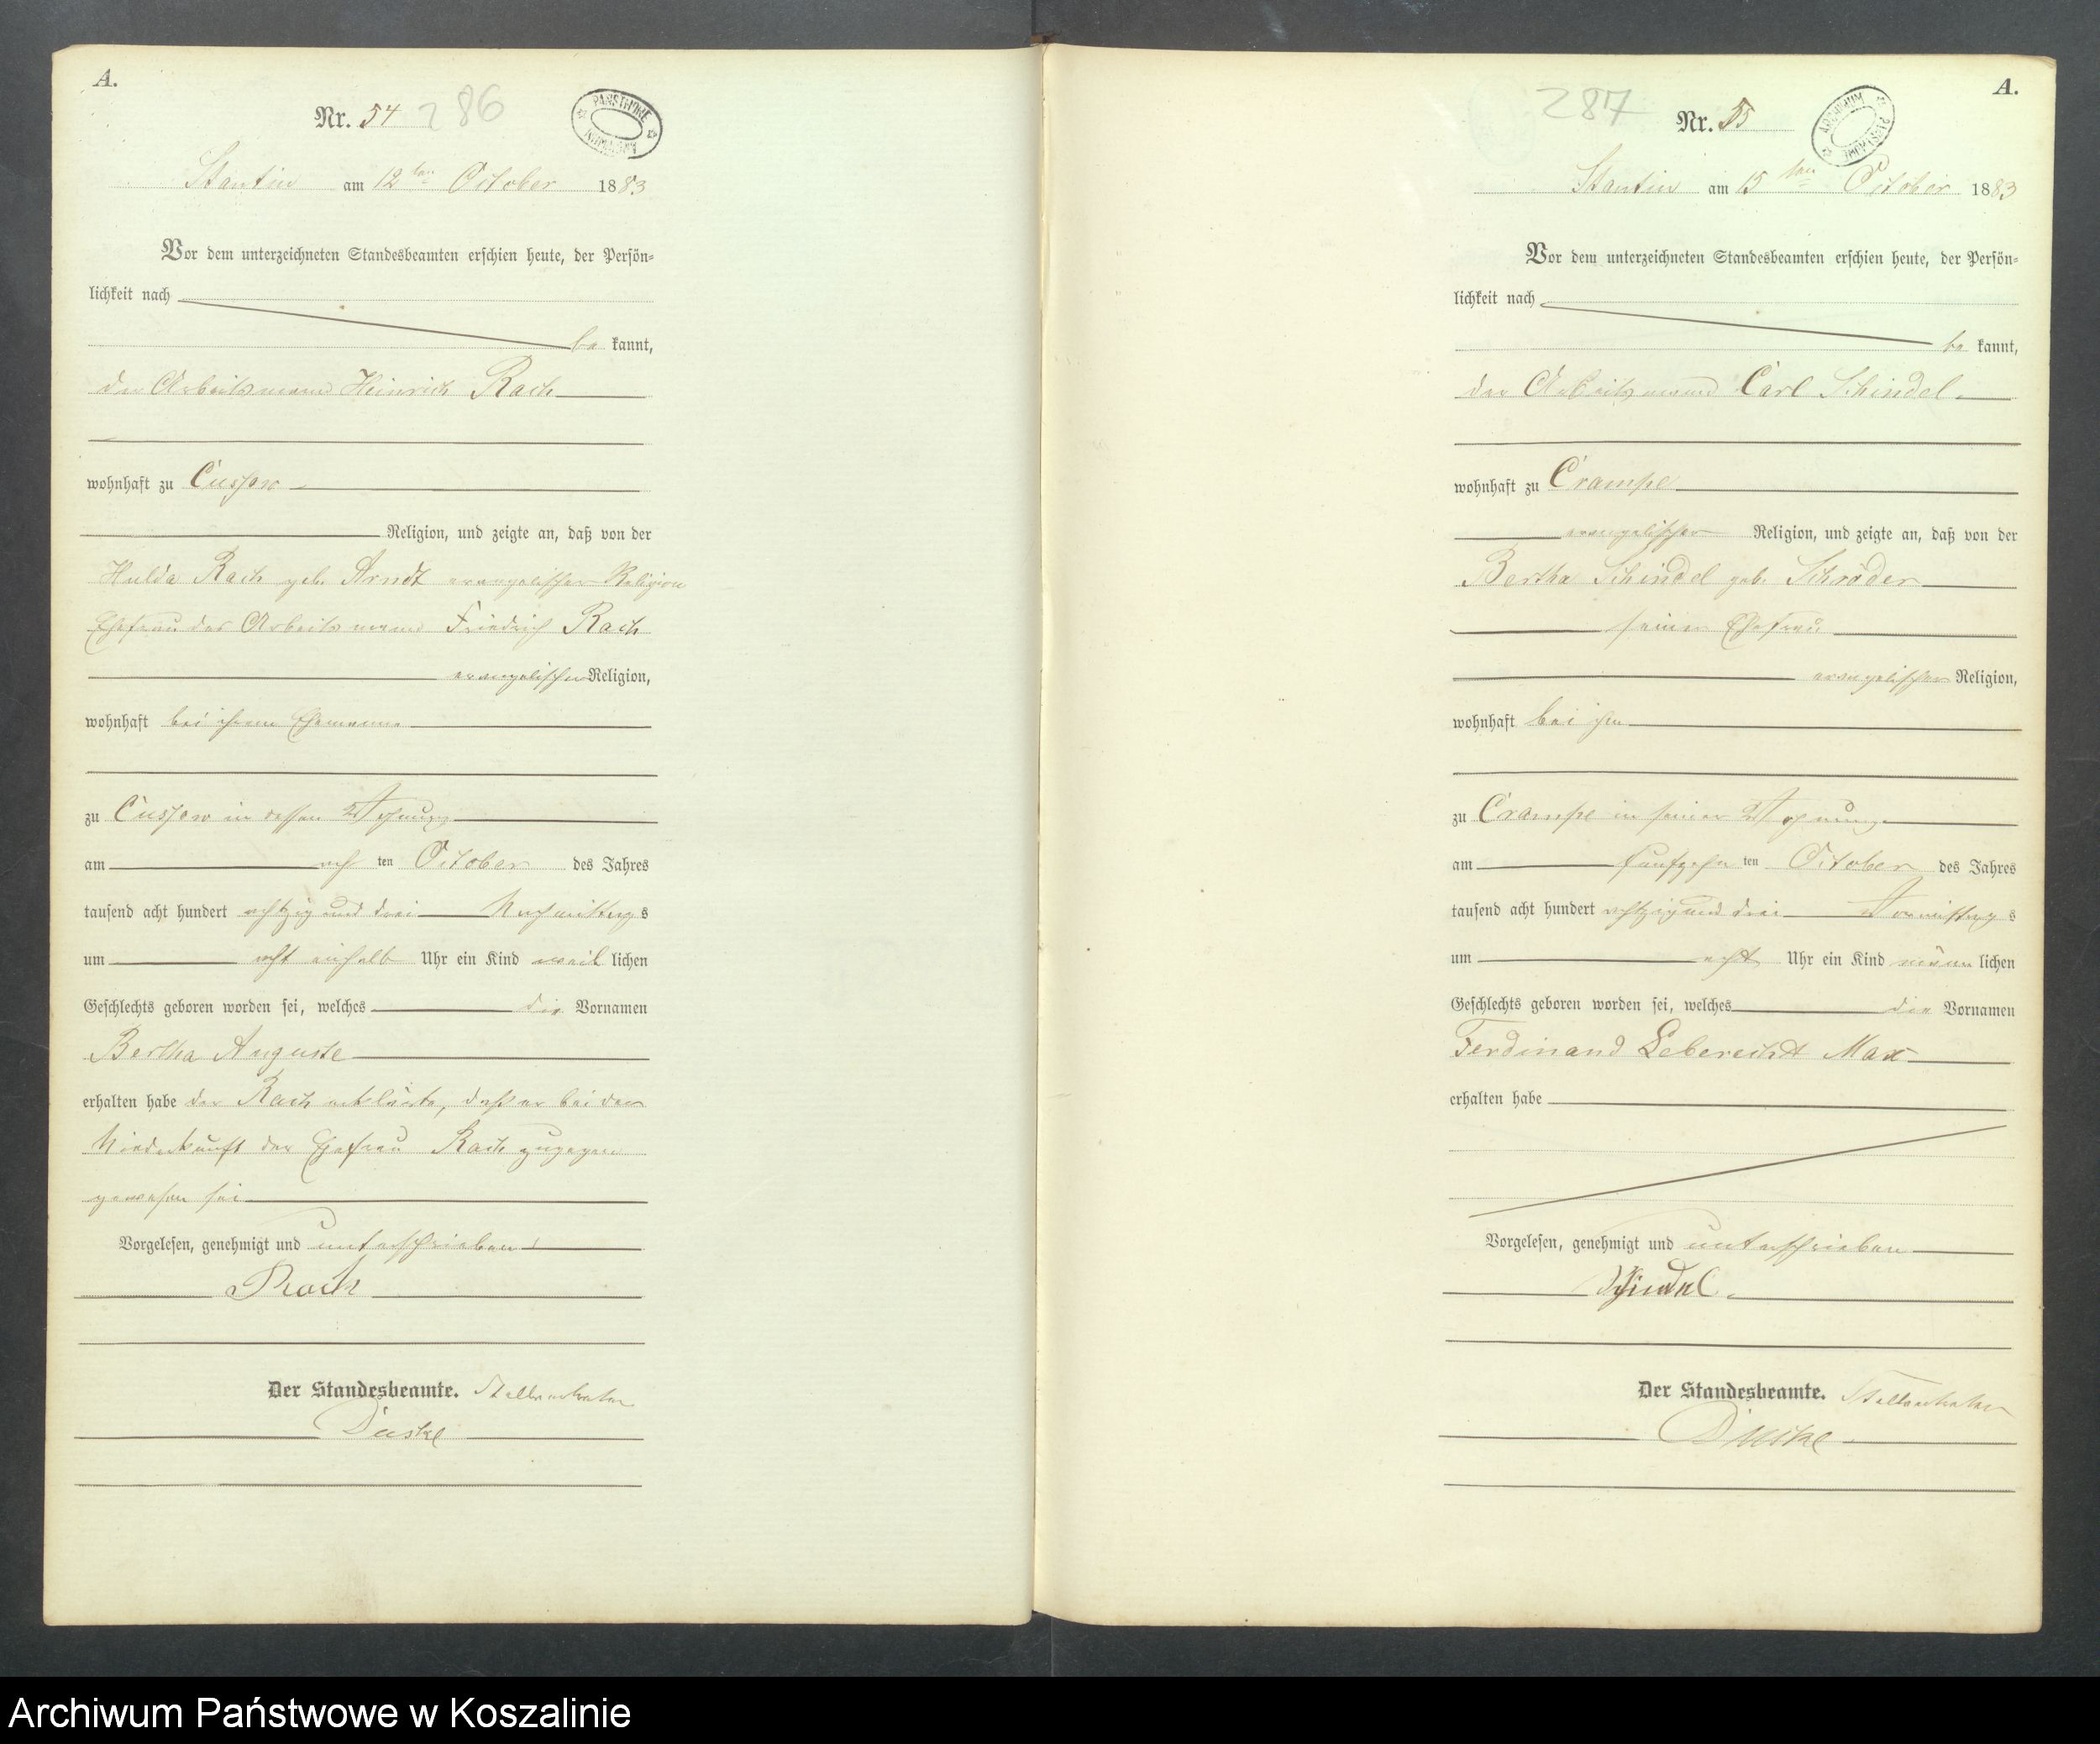 A.
Nr. 54 286
PAŃSTWOWE ARCHIWUM
Stantin am 12ten October 1883
Vor dem unterzeichneten Standesbeamten erschien heute, der Persön-
lichkeit nach
be kannt,
der Arbeitsmann Heinrich Rach
wohnhaft zu Cussow
Religion, und zeigte an, daß von der
Hulda Rach geb. Arndt evangelischer Religion
Ehefrau des Arbeitsmann Friedrich Rach
evangelischer Religion,
wohnhaft bei ihrem Ehemanne
zu Cussow in dessen Wohnung
am ach ten October des Jahres
tausend acht hundert achtzig und drei Nachmittags
um acht einhalb Uhr ein Kind weib lichen
Geschlechts geboren worden sei, welches die Vornamen
Bertha Auguste
erhalten habe der Rach erklärte, daß er bei der
Niederkunft der Ehefrau Rach zugegen
gewesen sei
Vorgelesen, genehmigt und unterschrieben
Rach
Der Standesbeamte. Stellvertreter
A.
287 Nr. 55
ARCHIWUM PAŃSTWOWE
Stantin am 15ten October 1883
Vor dem unterzeichneten Standesbeamten erschien heute, der Persön-
lichkeit nach
be kannt,
der Arbeitsmann Carl Schindel
wohnhaft zu Crampe
evangelischer Religion, und zeigte an, daß von der
Bertha Schindel geb. Schröder
seiner Ehefrau
evangelischer Religion,
wohnhaft bei ihm
zu Crampe in seiner Wohnung
am fünfzehn ten October des Jahres
tausend acht hundert achtzig und drei Vormittags
um acht Uhr ein Kind männ lichen
Geschlechts geboren worden sei, welches die Vornamen
Ferdinand Leberecht Max
erhalten habe
Vorgelesen, genehmigt und unterschrieben
Schindel
Der Standesbeamte. Stellvertreter
Archiwum Państwowe w Koszalinie